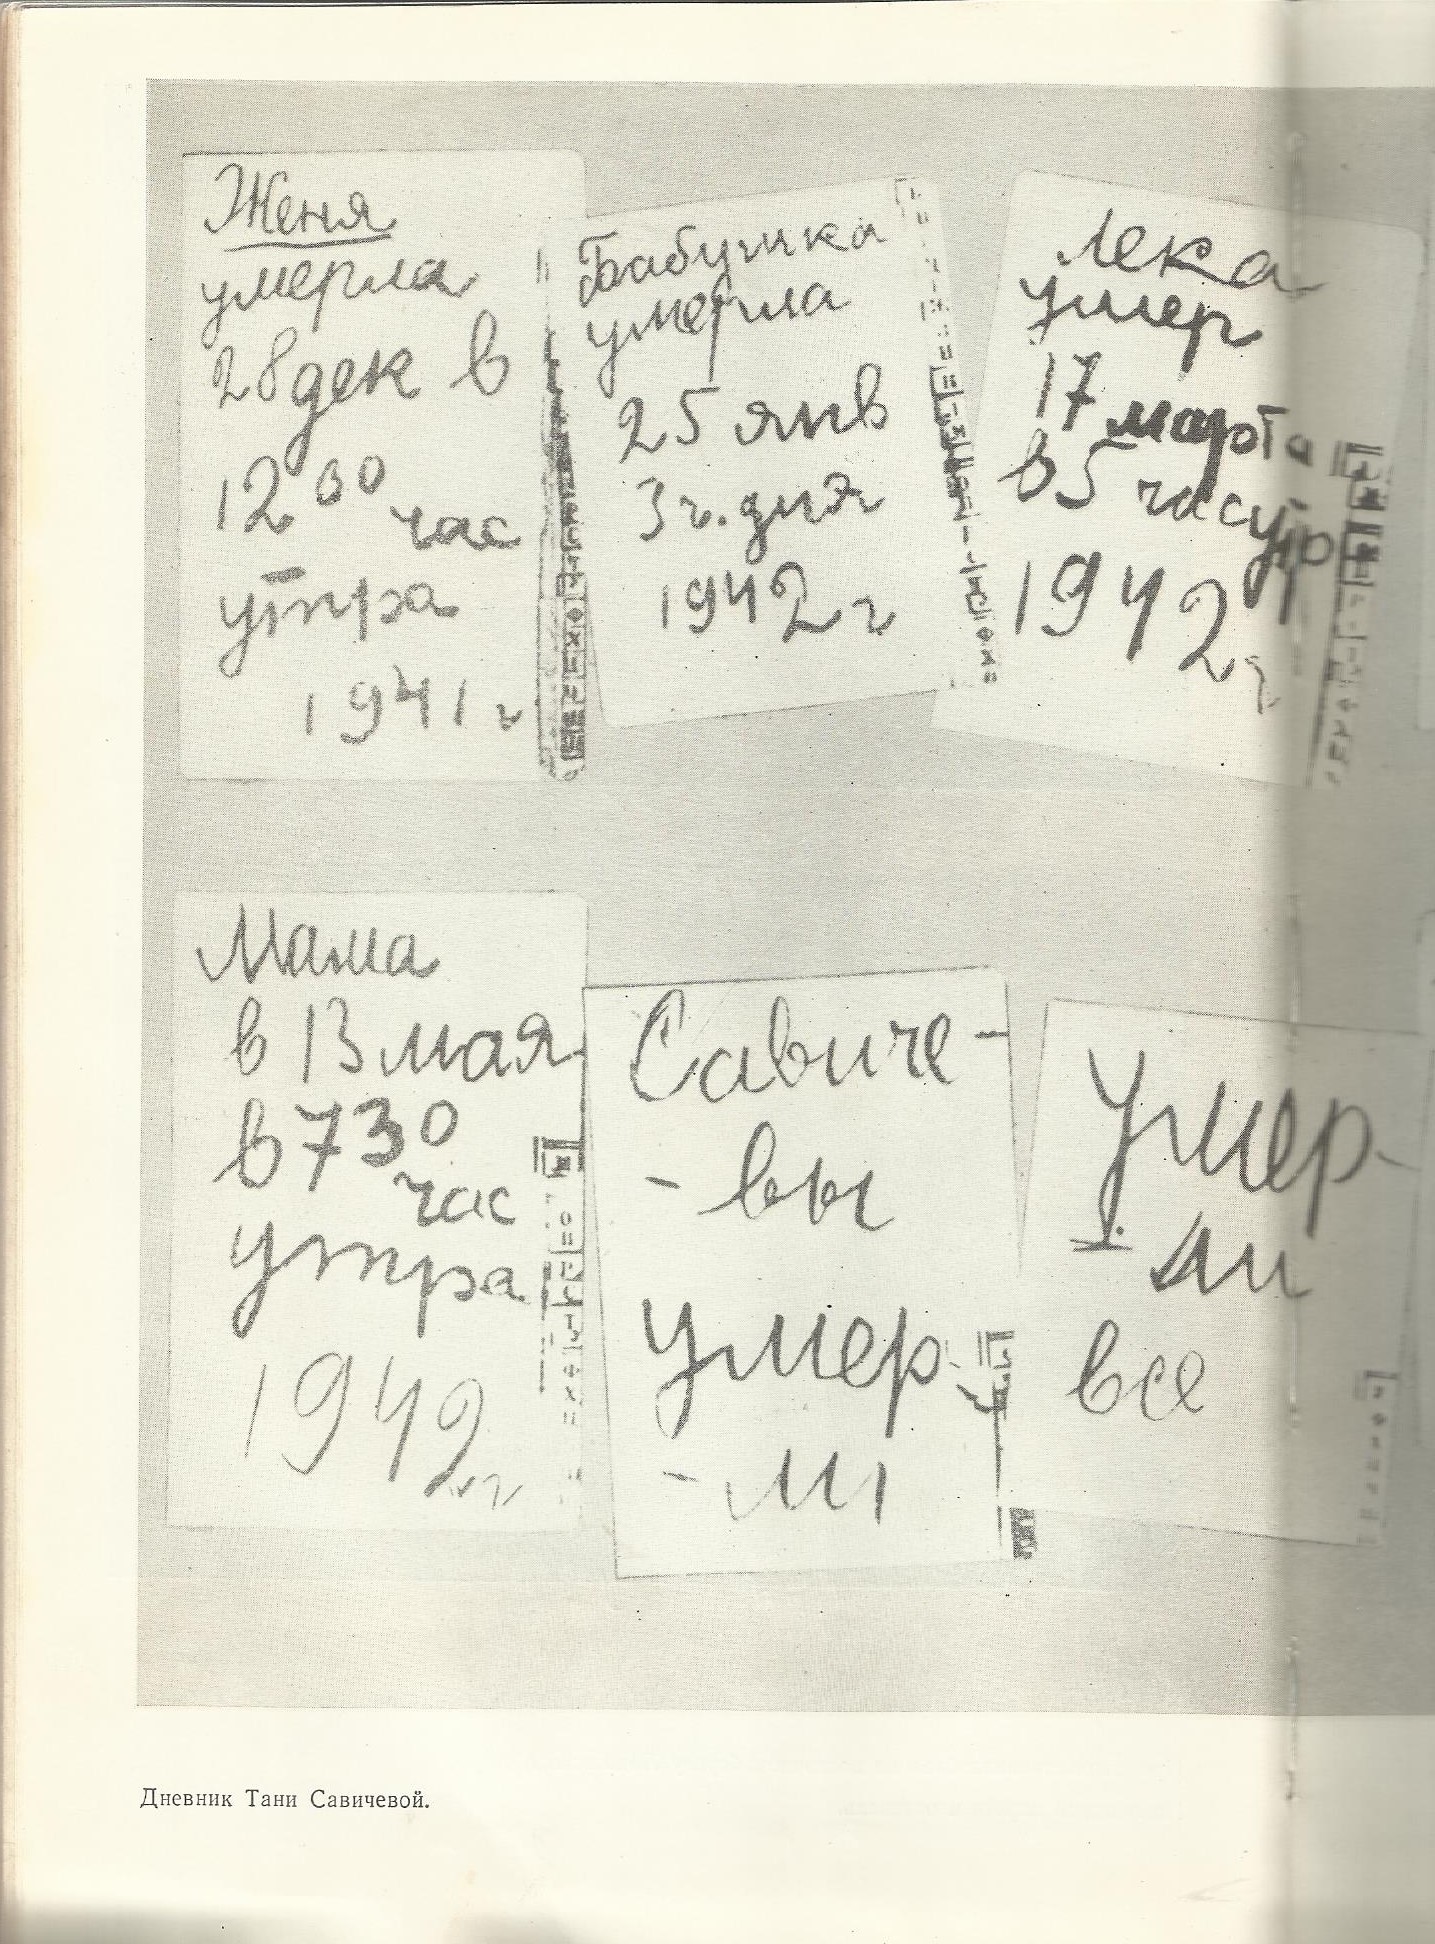 Женя
умерла
28 дек в
12 00 час
утра
1941 г
Бабушка
умерла
25 янв
3 ч. дня
1942 г
Лека
умер
17 марта
в 5 час утр
1942 г
Мама
в 13 мая
в 7 30
час
утра
1942 г
Савиче-
-вы
умер-
-ли
Умер-
ли
все
Дневник Тани Савичевой.